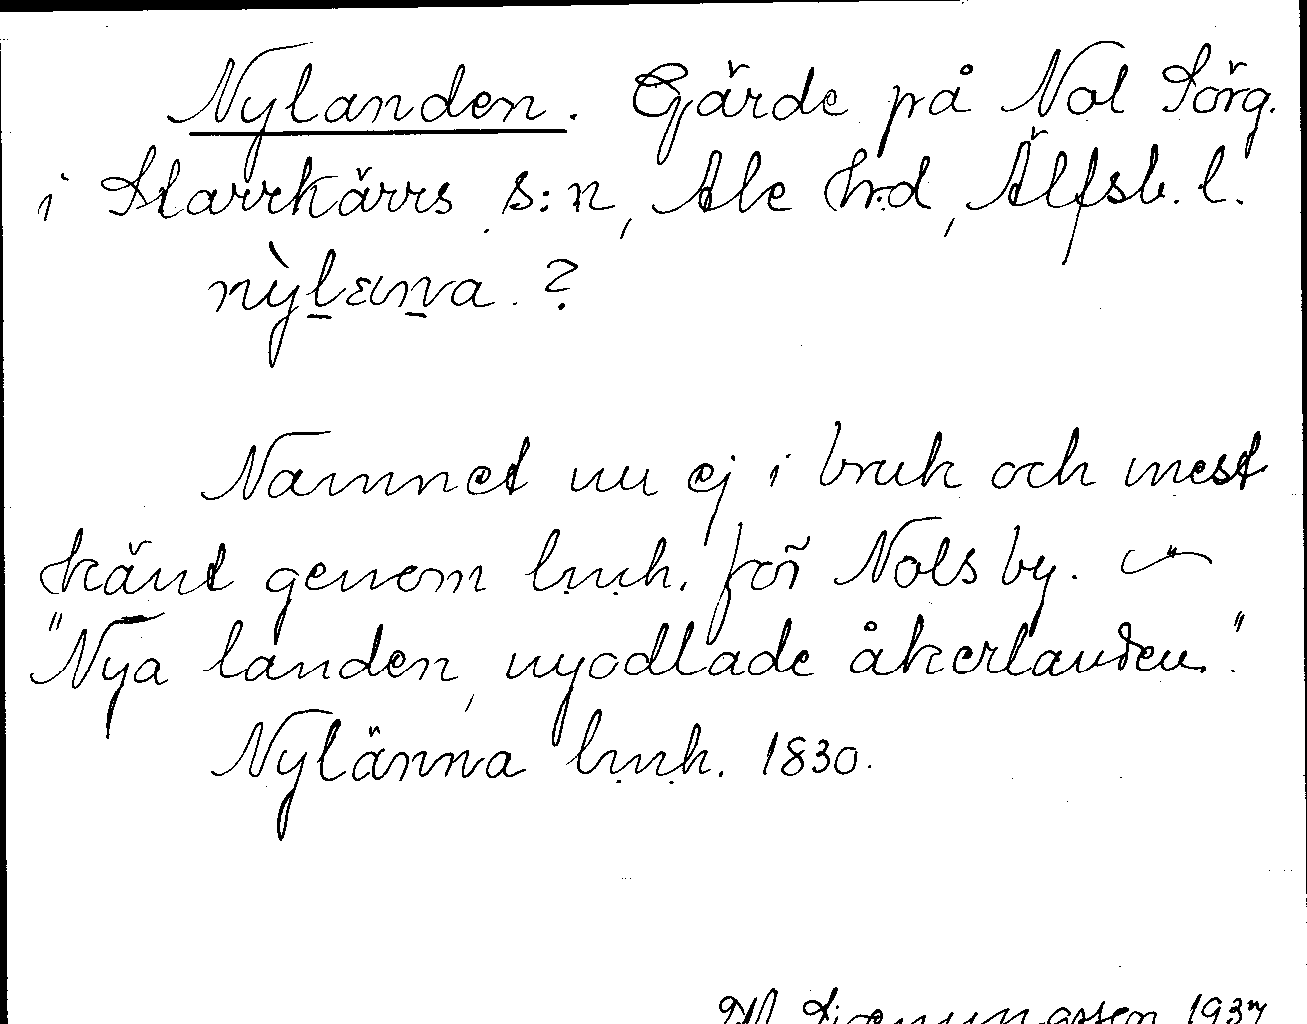 Nylanden. Gärde på Nol Sörg.
i Starrkärrs s:n, Ale h:d, Älfsb. l.
nỳlæṉa. ?
Namnet nu ej i bruk och mest
känt genom l.m.h. för Nols by.
"Nya landen, nyodlade åkerlanden."
Nylänna l.m.h. 1830.
1937